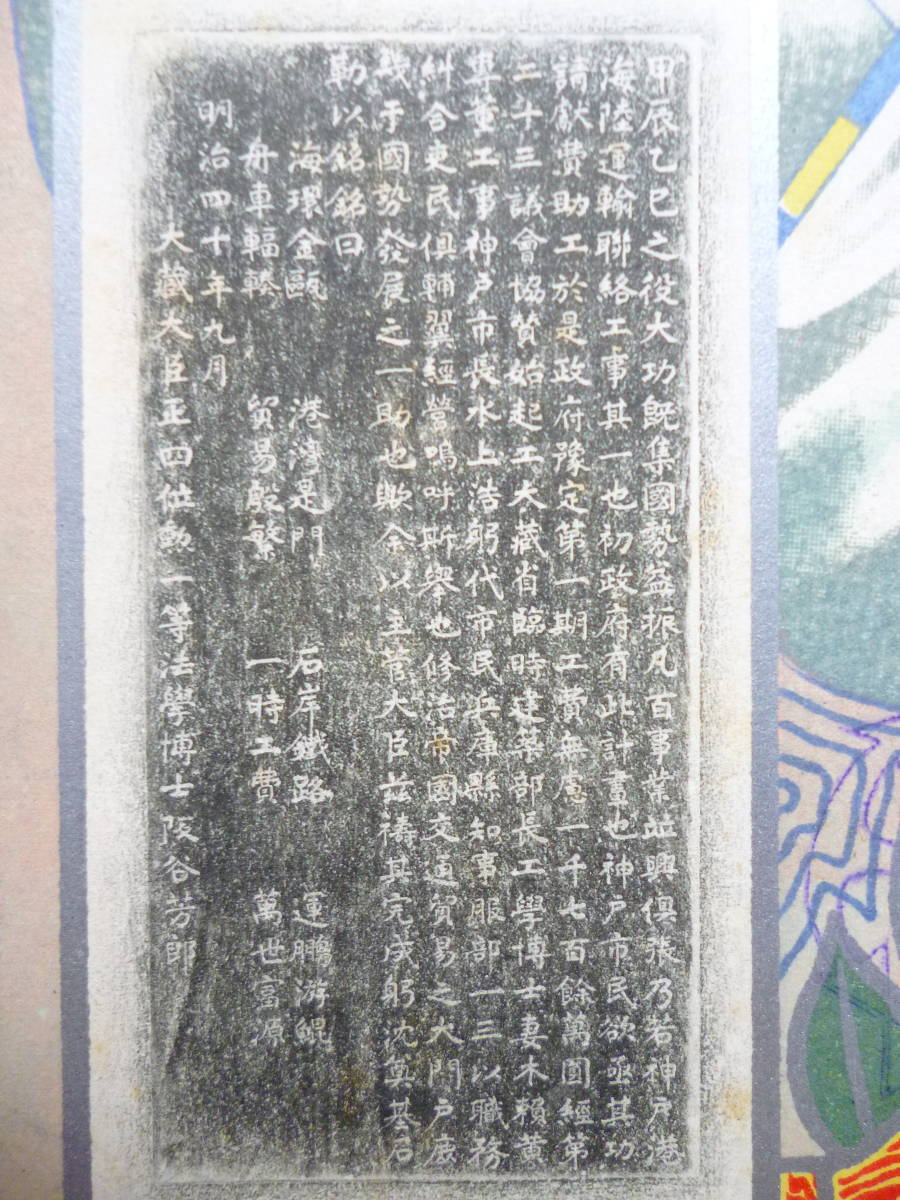 甲辰乙巳之役大功既集國勢益振凡百事業並興俱張乃若神戸港
海陸運輸聯絡工事其一也初政府有此計畫也神戸市民欲亟其功
請獻費助工於是政府豫定第一期工費無慮一千七百餘萬圓經第
二十三議會協賛始起工大藏省臨時建築部長工學博士妻木賴黄
專董工事神戸市長水上浩躬代市民兵庫縣知事服部一三以職務
糾合吏民俱輔翼經營嗚呼斯擧也修治帝國交通貿易之大門戸庶
幾于國勢發展之一助也歟余以主管大臣茲祷其完成躬沈奠基石
勒以銘銘曰
海環金甌 港灣是門 石岸鐵路 運鵬游鯤
舟車輻輳 貿易殷繁 一時工費 萬世富源
明治四十年九月
大藏大臣正四位勲一等法學博士阪谷芳郎